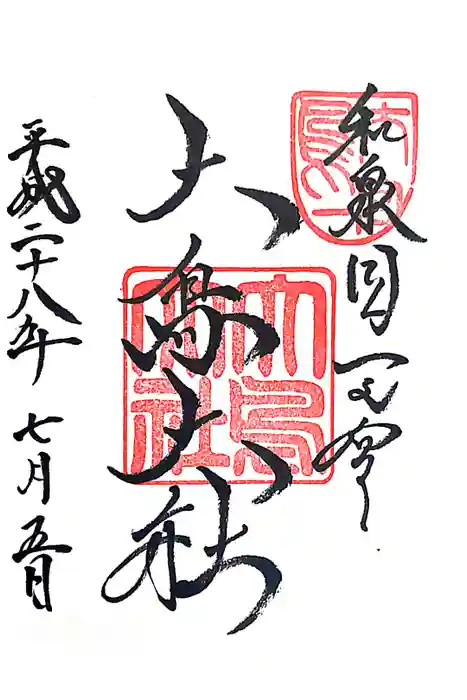 和泉国一之宮
大鳥大社
大鳥
大社
平成二十八年七月五日